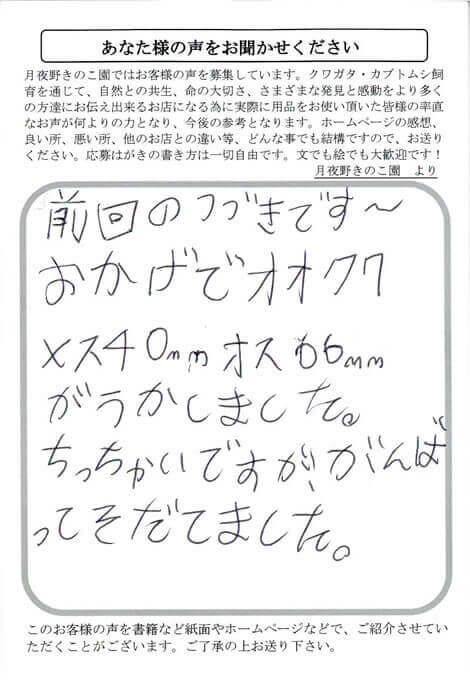 あなた様の声をお聞かせください
月夜野きのこ園ではお客様の声を募集しています。クワガタ・カブトムシ飼
育を通じて、自然との共生、命の大切さ、さまざまな発見と感動をより多く
の方達にお伝え出来るお店になる為に実際に用品をお使い頂いた皆様の率直
なお声が何よりの力となり、今後の参考となります。ホームページの感想、
良い所、悪い所、他のお店との違い等、どんな事でも結構ですので、お送り
ください。応募はがきの書き方は一切自由です。文でも絵でも大歓迎です！
月夜野きのこ園　より
前回のつづきです〜
おかげでオオクワ
メス40mmオス66mm
がうかしました。
ちっちゃいですが、がんば
ってそだてました。
このお客様の声を書籍など紙面やホームページなどで、ご紹介させてい
ただくことがございます。ご了承の上お送り下さい。